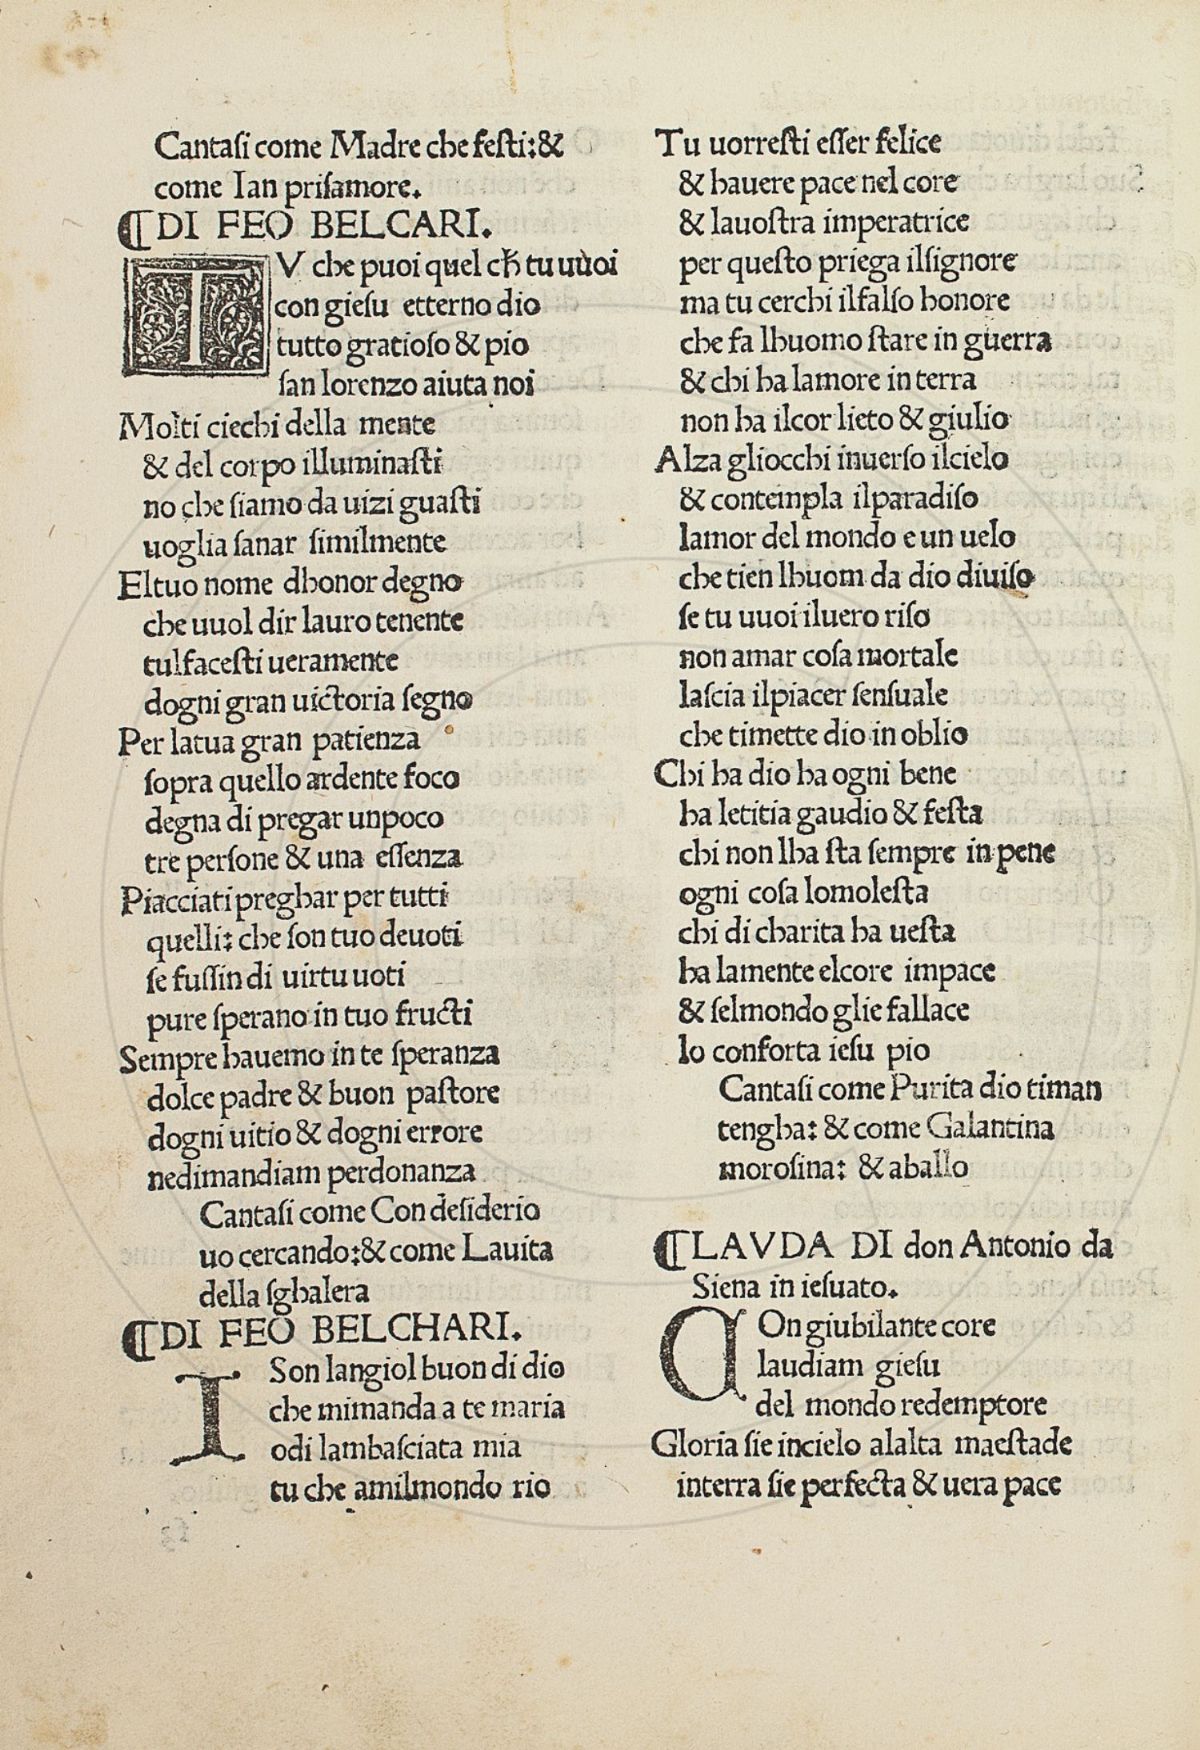 Cantasi come Madre che festi:&
come Ian prisamore.
¶DI FEO BELCARI.
TV che puoi quel ch̄ tu uuoi
con giesu etterno dio
tutto gratioso & pio
san lorenzo aiuta noi
Molti ciechi della mente
& del corpo illuminasti
no che siamo da uizi guasti
uoglia sanar similmente
El tuo nome dhonor degno
che uuol dir lauro tenente
tulfacesti ueramente
dogni gran uictoria segno
Per latua gran patienza
sopra quello ardente foco
degna di pregar unpoco
tre persone & una essenza
Piacciati preghar per tutti
quelli: che son tuo deuoti
se fussin di uirtu uoti
pure sperano in tuo fructi
Sempre hauemo in te speranza
dolce padre & buon pastore
dogni uitio & dogni errore
nedimandiam perdonanza
Cantasi come Con desiderio
uo cercando:& come Lauita
della sghalera
¶DI FEO BELCHARI.
I Son langiol buon di dio
che mimanda a te maria
odi lambasciata mia
tu che amilmondo rio
Tu uorresti esser felice
& hauere pace nel core
& lauostra imperatrice
per questo priega ilsignore
ma tu cerchi ilfalso honore
che fa lhuomo stare in guerra
& chi ha lamore in terra
non ha ilcor lieto & giulio
Alza gliocchi inuerso ilcielo
& contempla ilparadiso
lamor del mondo e un uelo
che tien lhuom da dio diuiso
se tu uuoi iluero riso
non amar cosa mortale
lascia ilpiacer sensuale
che timette dio in oblio
Chi ha dio ha ogni bene
ha letitia gaudio & festa
chi non lha sta sempre in pene
ogni cosa lomolesta
chi di charita ha uesta
ha lamente elcore impace
& selmondo glie fallace
lo conforta iesu pio
Cantasi come Purita dio timan
tengha: & come Galantina
morosina: & aballo
¶LAVDA DI don Antonio da
Siena in iesuato.
COn giubilante core
laudiam giesu
del mondo redemptore
Gloria sie incielo alalta maestade
interra sie perfecta & uera pace